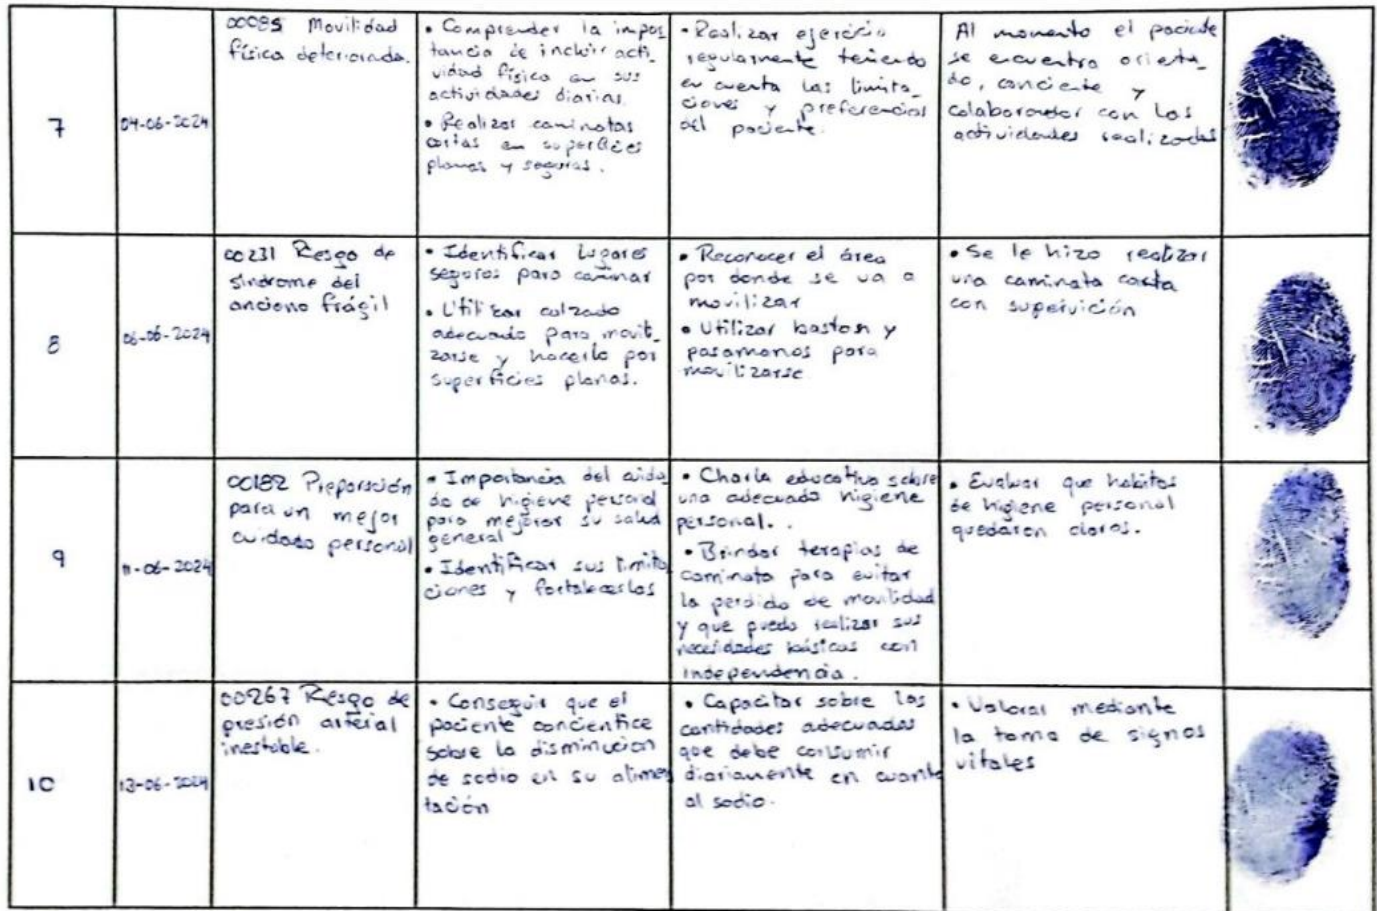 7
04-06-2024
00085 Movilidad
física deteriorada.
• Comprender la impor
tancia de incluir acti_
vidad física en sus
actividades diarias.
• Realizar caminatas
cortas en superficies
planas y seguras.
• Realizar ejercicio
regularmente teniendo
en cuenta las limita_
ciones y preferencias
del paciente.
Al momento el paciente
se encuentra orienta_
do, conciente y
colaborador con las
actividades realizadas
8
06-06-2024
00231 Riesgo de
síndrome del
anciano frágil
• Identificar lugares
seguros para caminar
• Utilizar calzado
adecuado para movili_
zarse y hacerlo por
superficies planas.
• Reconocer el área
por donde se va a
movilizar
• Utilizar baston y
pasamanos para
movilizarse
• Se le hizo realizar
una caminata corta
con supervición
9
11-06-2024
00182 Preparación
para un mejor
cuidado personal
• Importancia del cuida
do de higiene personal
para mejorar su salud
general
• Identificar sus limita
ciones y fortalecerlas
• Charla educativa sobre
una adecuada higiene
personal..
• Brindar terapias de
caminata para evitar
la perdida de movilidad
y que pueda realizar sus
necesidades básicas con
independencia.
• Evaluar que habitos
de higiene personal
quedaron claros.
10
13-06-2024
00267 Riesgo de
presión arterial
inestable.
• Conseguir que el
paciente concientice
sobre la disminucion
de sodio en su alimen
tación
• Capacitar sobre las
cantidades adecuadas
que debe consumir
diariamente en cuanto
al sodio.
• Valorar mediante
la toma de signos
vitales